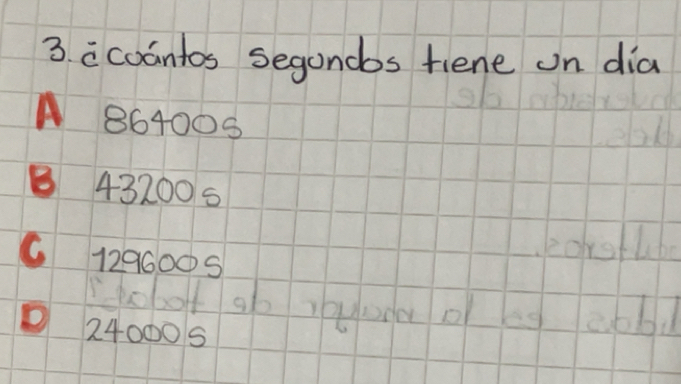 3. ¿cuántos segundos tiene un día
A 86400s
B 43200s
C 129600s
D 24000s